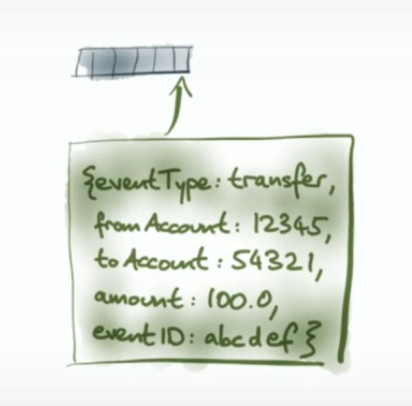 {eventType: transfer,
fromAccount: 12345,
toAccount: 54321,
amount: 100.0,
eventID: abcdef}